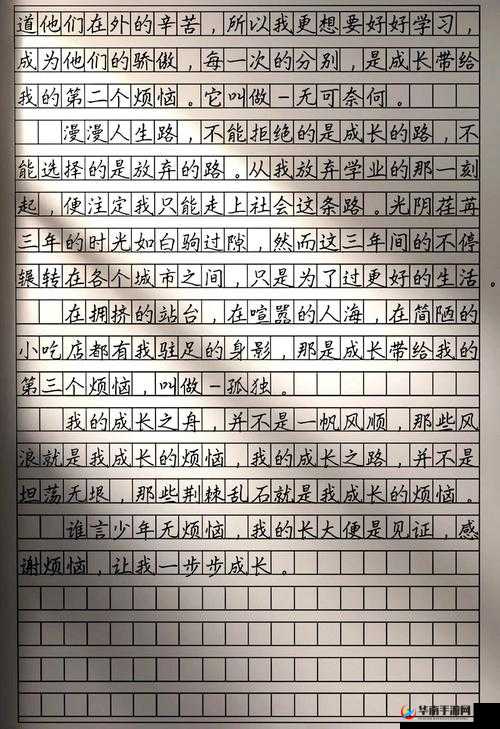 道他们在外的辛苦，所以我更想要好好学习，
成为他们的骄傲，每一次的分别，是成长带给
我的第二个烦恼。它叫做-无可奈何。
漫漫人生路，不能拒绝的是成长的路，不
能选择的是放弃的路。从我放弃学业的那一刻
起，便注定我只能走上社会这条路。光阴荏苒
三年的时光如白驹过隙，然而这三年间的不停
辗转在各个城市之间，只是为了过更好的生活。
在拥挤的站台，在喧嚣的人海，在简陋的
小吃店都有我驻足的身影，那是成长带给我的
第三个烦恼，叫做-孤独。
我的成长之舟，并不是一帆风顺，那些风
浪就是我成长的烦恼，我的成长之路，并不是
坦荡无垠，那些荆棘乱石就是我成长的烦恼。
谁言少年无烦恼，我的长大便是见证，感
谢烦恼，让我一步步成长。
华南手游网